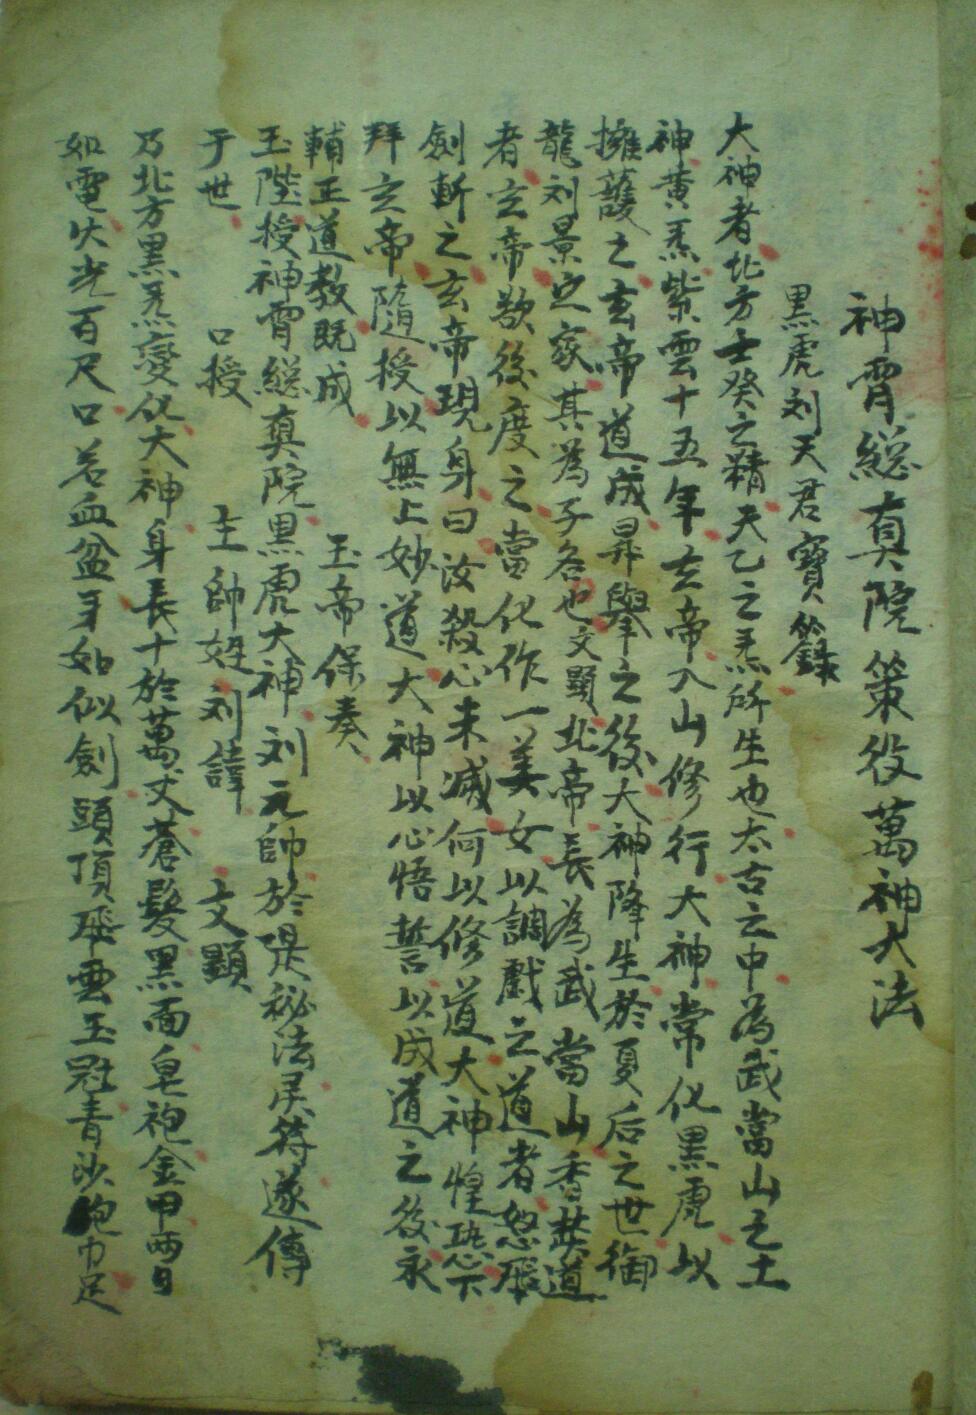 神霄總真院策役萬神大法
黑虎刘天君寶籙
大神者北方壬癸之精天乙之炁所生也太古之中為武當山之土
神黄炁紫雲十五年玄帝入山修行大神常化黑虎以
擁護之玄帝道成昇舉之後大神降生於夏后之世御
龍刘景之家其為子名也文顯北帝長為武當山香火道
者玄帝欲後度之當化作一美女以調戲之道者怒飛
劍斬之玄帝現身曰汝殺心未滅何以修道大神惶恐下
拜之帝隨授以無上妙道大神以心悟誓以成道之後永
輔正道教既成 玉帝保奏
玉陛授神霄總真院黑虎大神刘元帥於是秘法灵符遂傳
于世 口授 主帥姓刘諱 文顯
乃北方黑炁變化大神身長十於萬丈蒼髮黑面皂袍金甲兩目
如電火光百尺口若血盆牙如似劍頭頂飛雲玉冠青沙包巾足